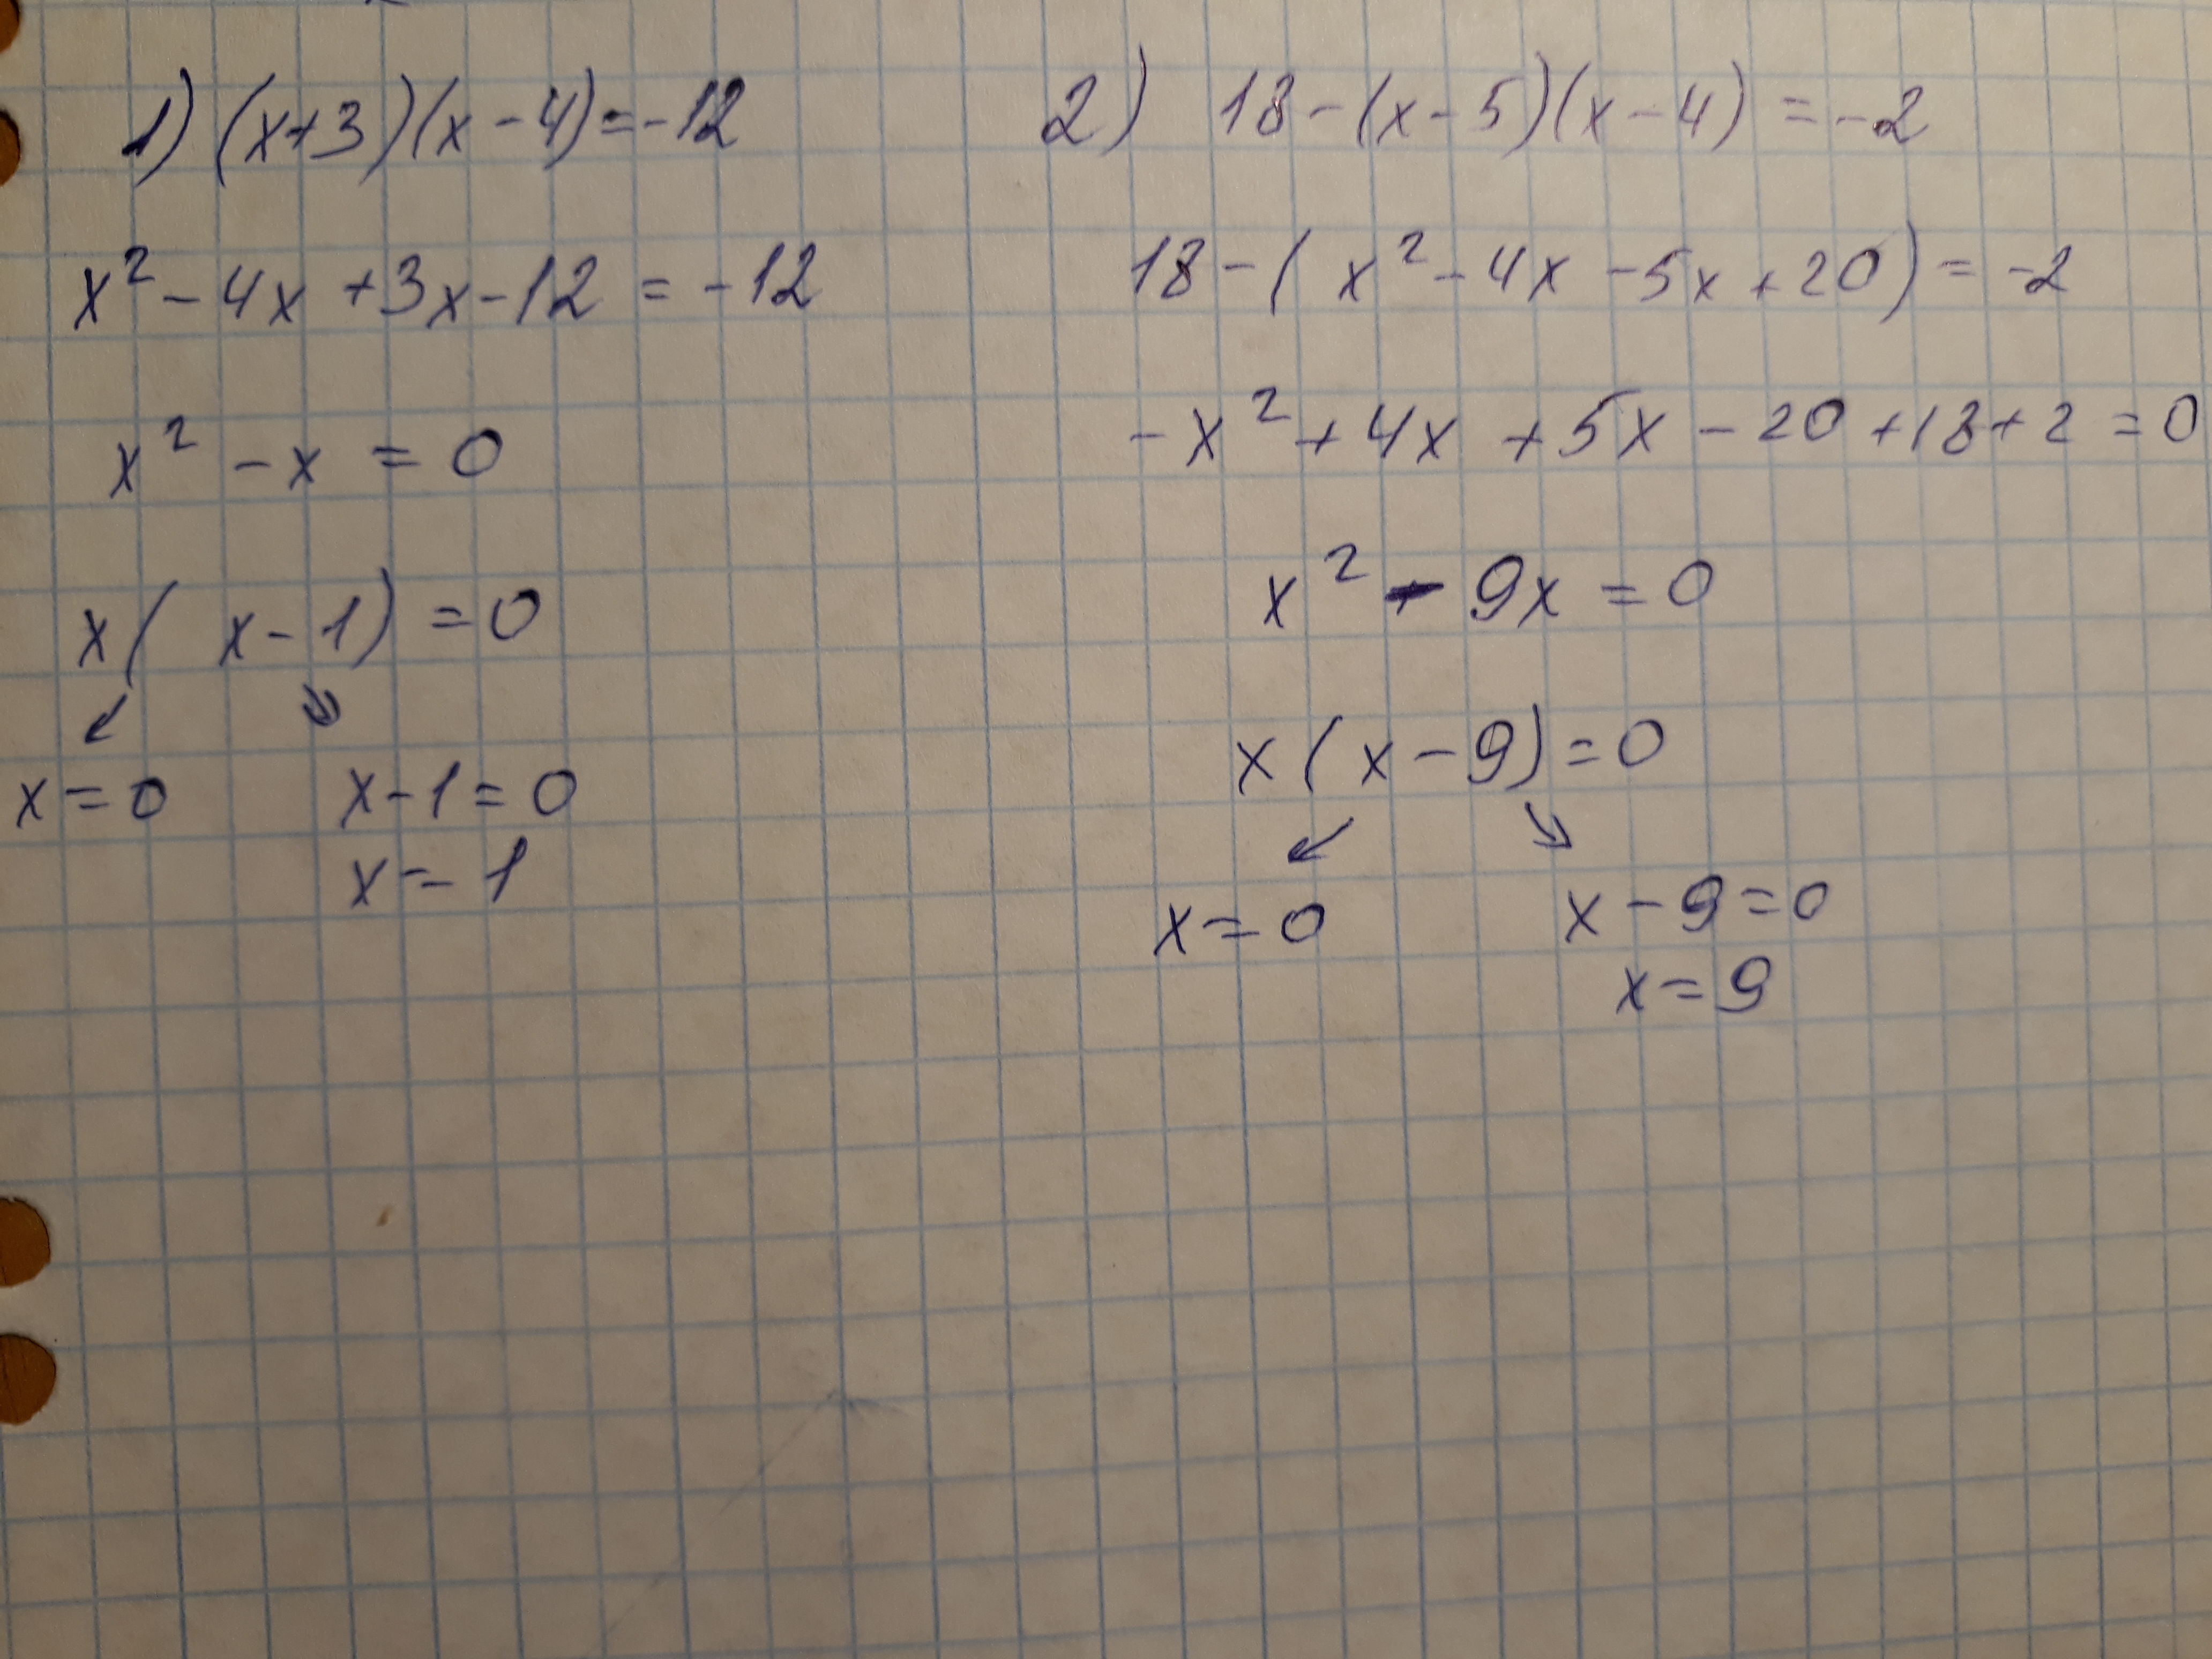 1) (x+3)(x-4)=-12
x² - 4x + 3x - 12 = -12
x² - x = 0
x( x - 1) = 0
↙ ↘
x = 0 x - 1 = 0
x = 1
2) 18 - (x - 5)(x - 4) = -2
18 - ( x² - 4x - 5x + 20) = -2
- x² + 4x + 5x - 20 + 18 + 2 = 0
x² - 9x = 0
x( x - 9) = 0
↙ ↘
x = 0 x - 9 = 0
x = 9